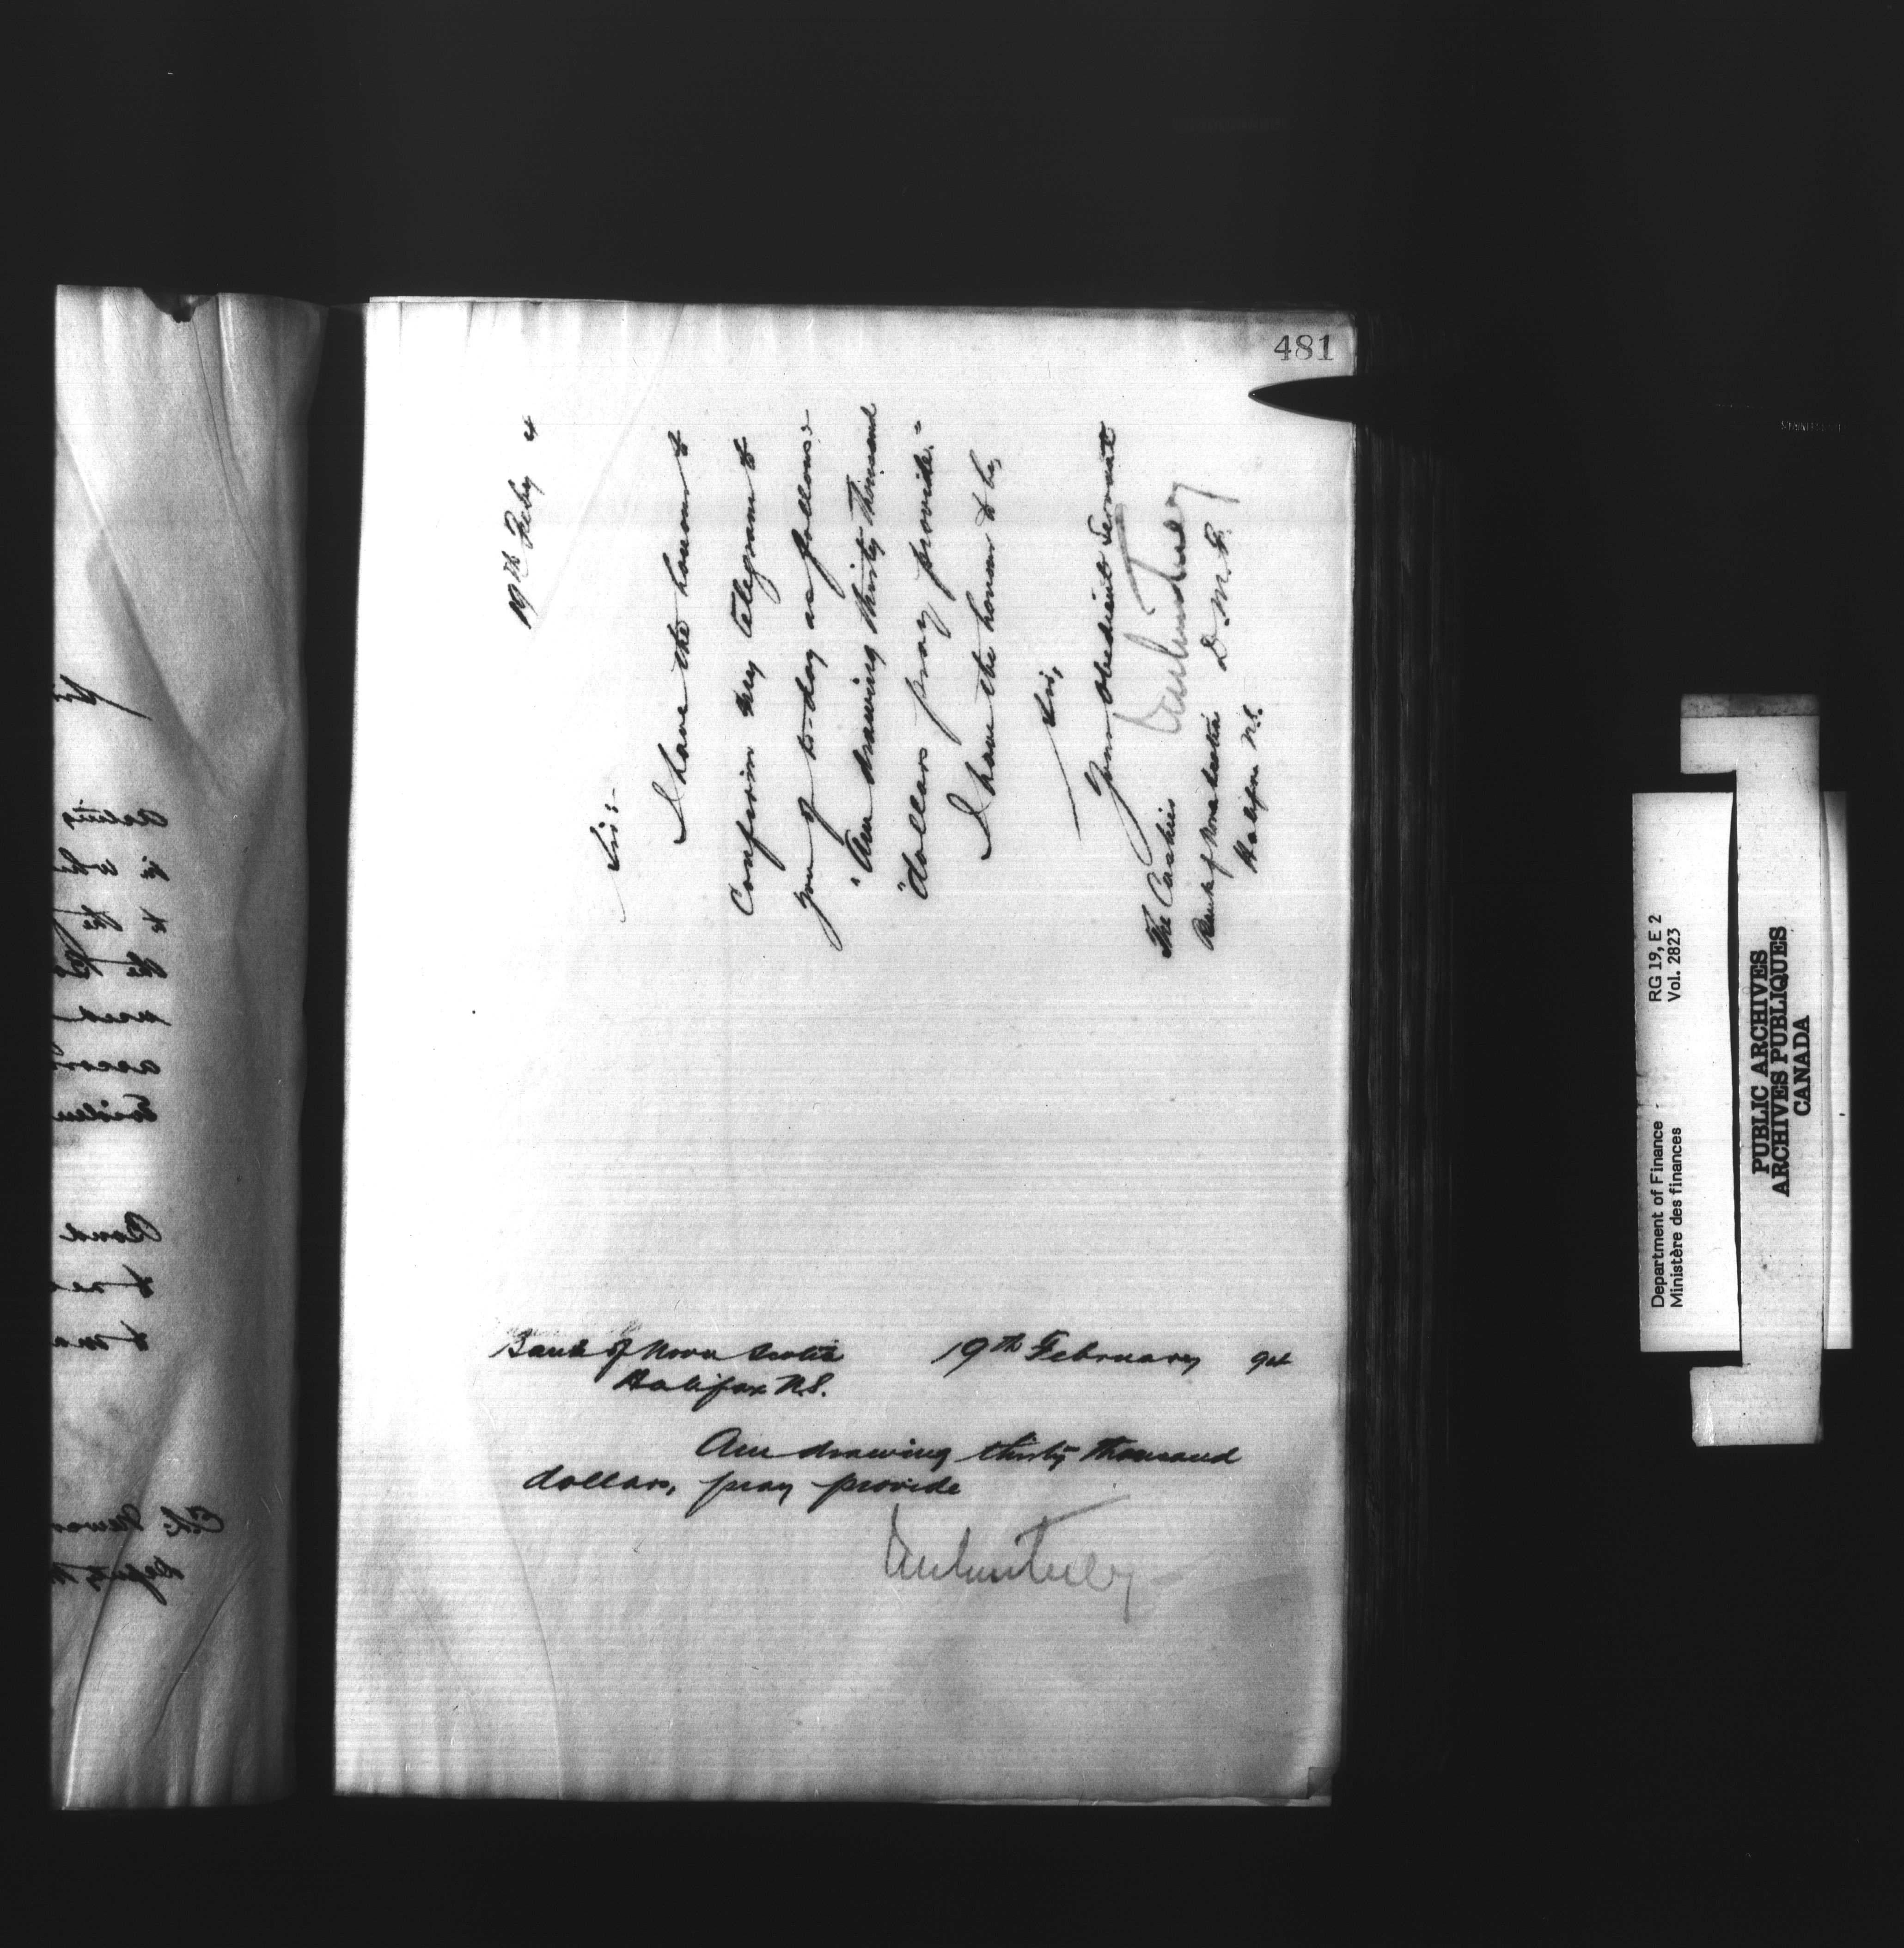 481
19th Feby 4
Sir:-
I have the honour to
Confirm my telegram to
you of to-day as follows:-
"Am drawing thirty thousand
"dollars pray provide."
I have the honour to be,
Sir,
Your obedient Servant
D.M.F.
The Cashier
Bank of Nova Scotia
Halifax N.S.
Bank of Nova Scotia 19th February 94
Halifax N.S.
Am drawing thirty thousand
dollars, pray provide
Department of Finance RG 19, E 2
Ministère des finances Vol. 2823
PUBLIC ARCHIVES
ARCHIVES PUBLIQUES
CANADA